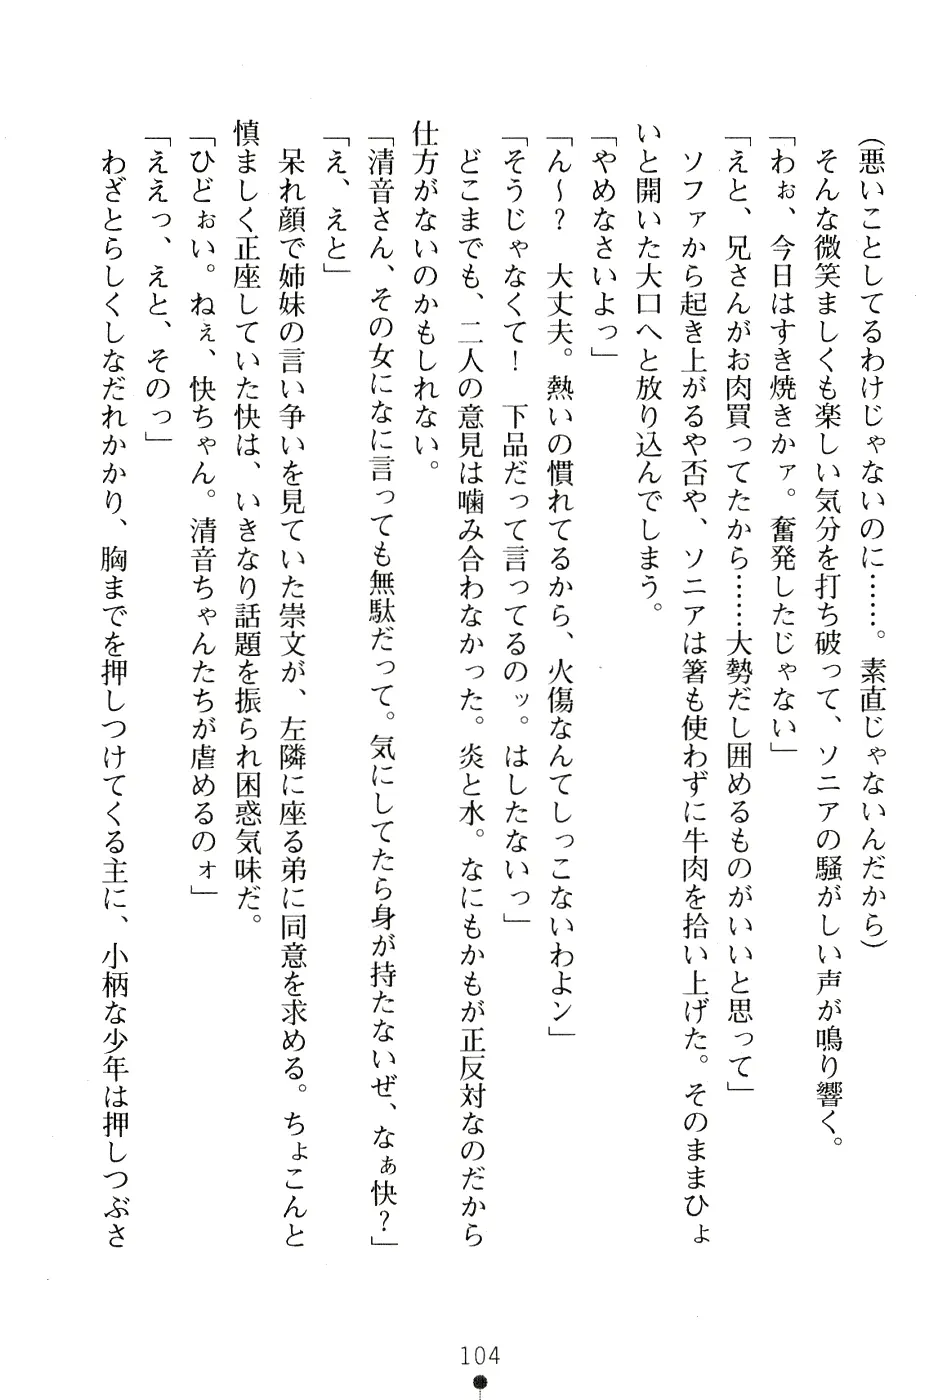 (悪いことしてるわけじゃないのに……。素直じゃないんだから)
そんな微笑ましくも楽しい気分を打ち破って、ソニアの騒がしい声が鳴り響く。
「わぉ、今日はすき焼きかァ。奮発したじゃない」
「えと、兄さんがお肉買ってたから……大勢だし囲めるものがいいと思って」
ソファから起き上がるや否や、ソニアは箸も使わずに牛肉を拾い上げた。そのままひょ
いと開いた大口へと放り込んでしまう。
「やめなさいよっ」
「ん〜？　大丈夫。熱いの慣れてるから、火傷なんてしっこないわよン」
「そうじゃなくて！　下品だって言ってるのッ。はしたないっ」
どこまでも、二人の意見は噛み合わなかった。炎と水。なにもかもが正反対なのだから
仕方がないのかもしれない。
「清音さん、その女になに言っても無駄だって。気にしてたら身が持たないぜ、なぁ快？」
「え、えと」
呆れ顔で姉妹の言い争いを見ていた崇文が、左隣に座る弟に同意を求める。ちょこんと
慎ましく正座していた快は、いきなり話題を振られ困惑気味だ。
「ひどぉい。ねぇ、快ちゃん。清音ちゃんたちが虐めるのォ」
「ええっ、えと、そのっ」
わざとらしくしなだれかかり、胸までを押しつけてくる主に、小柄な少年は押しつぶさ
104